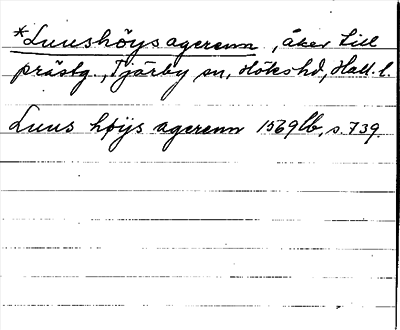 *Luushöysagerenn, åker till
prästg., Tjärby sn, Höks hd, Hall. l.
Luus høÿs agerenn 1569 lb, s. 739.